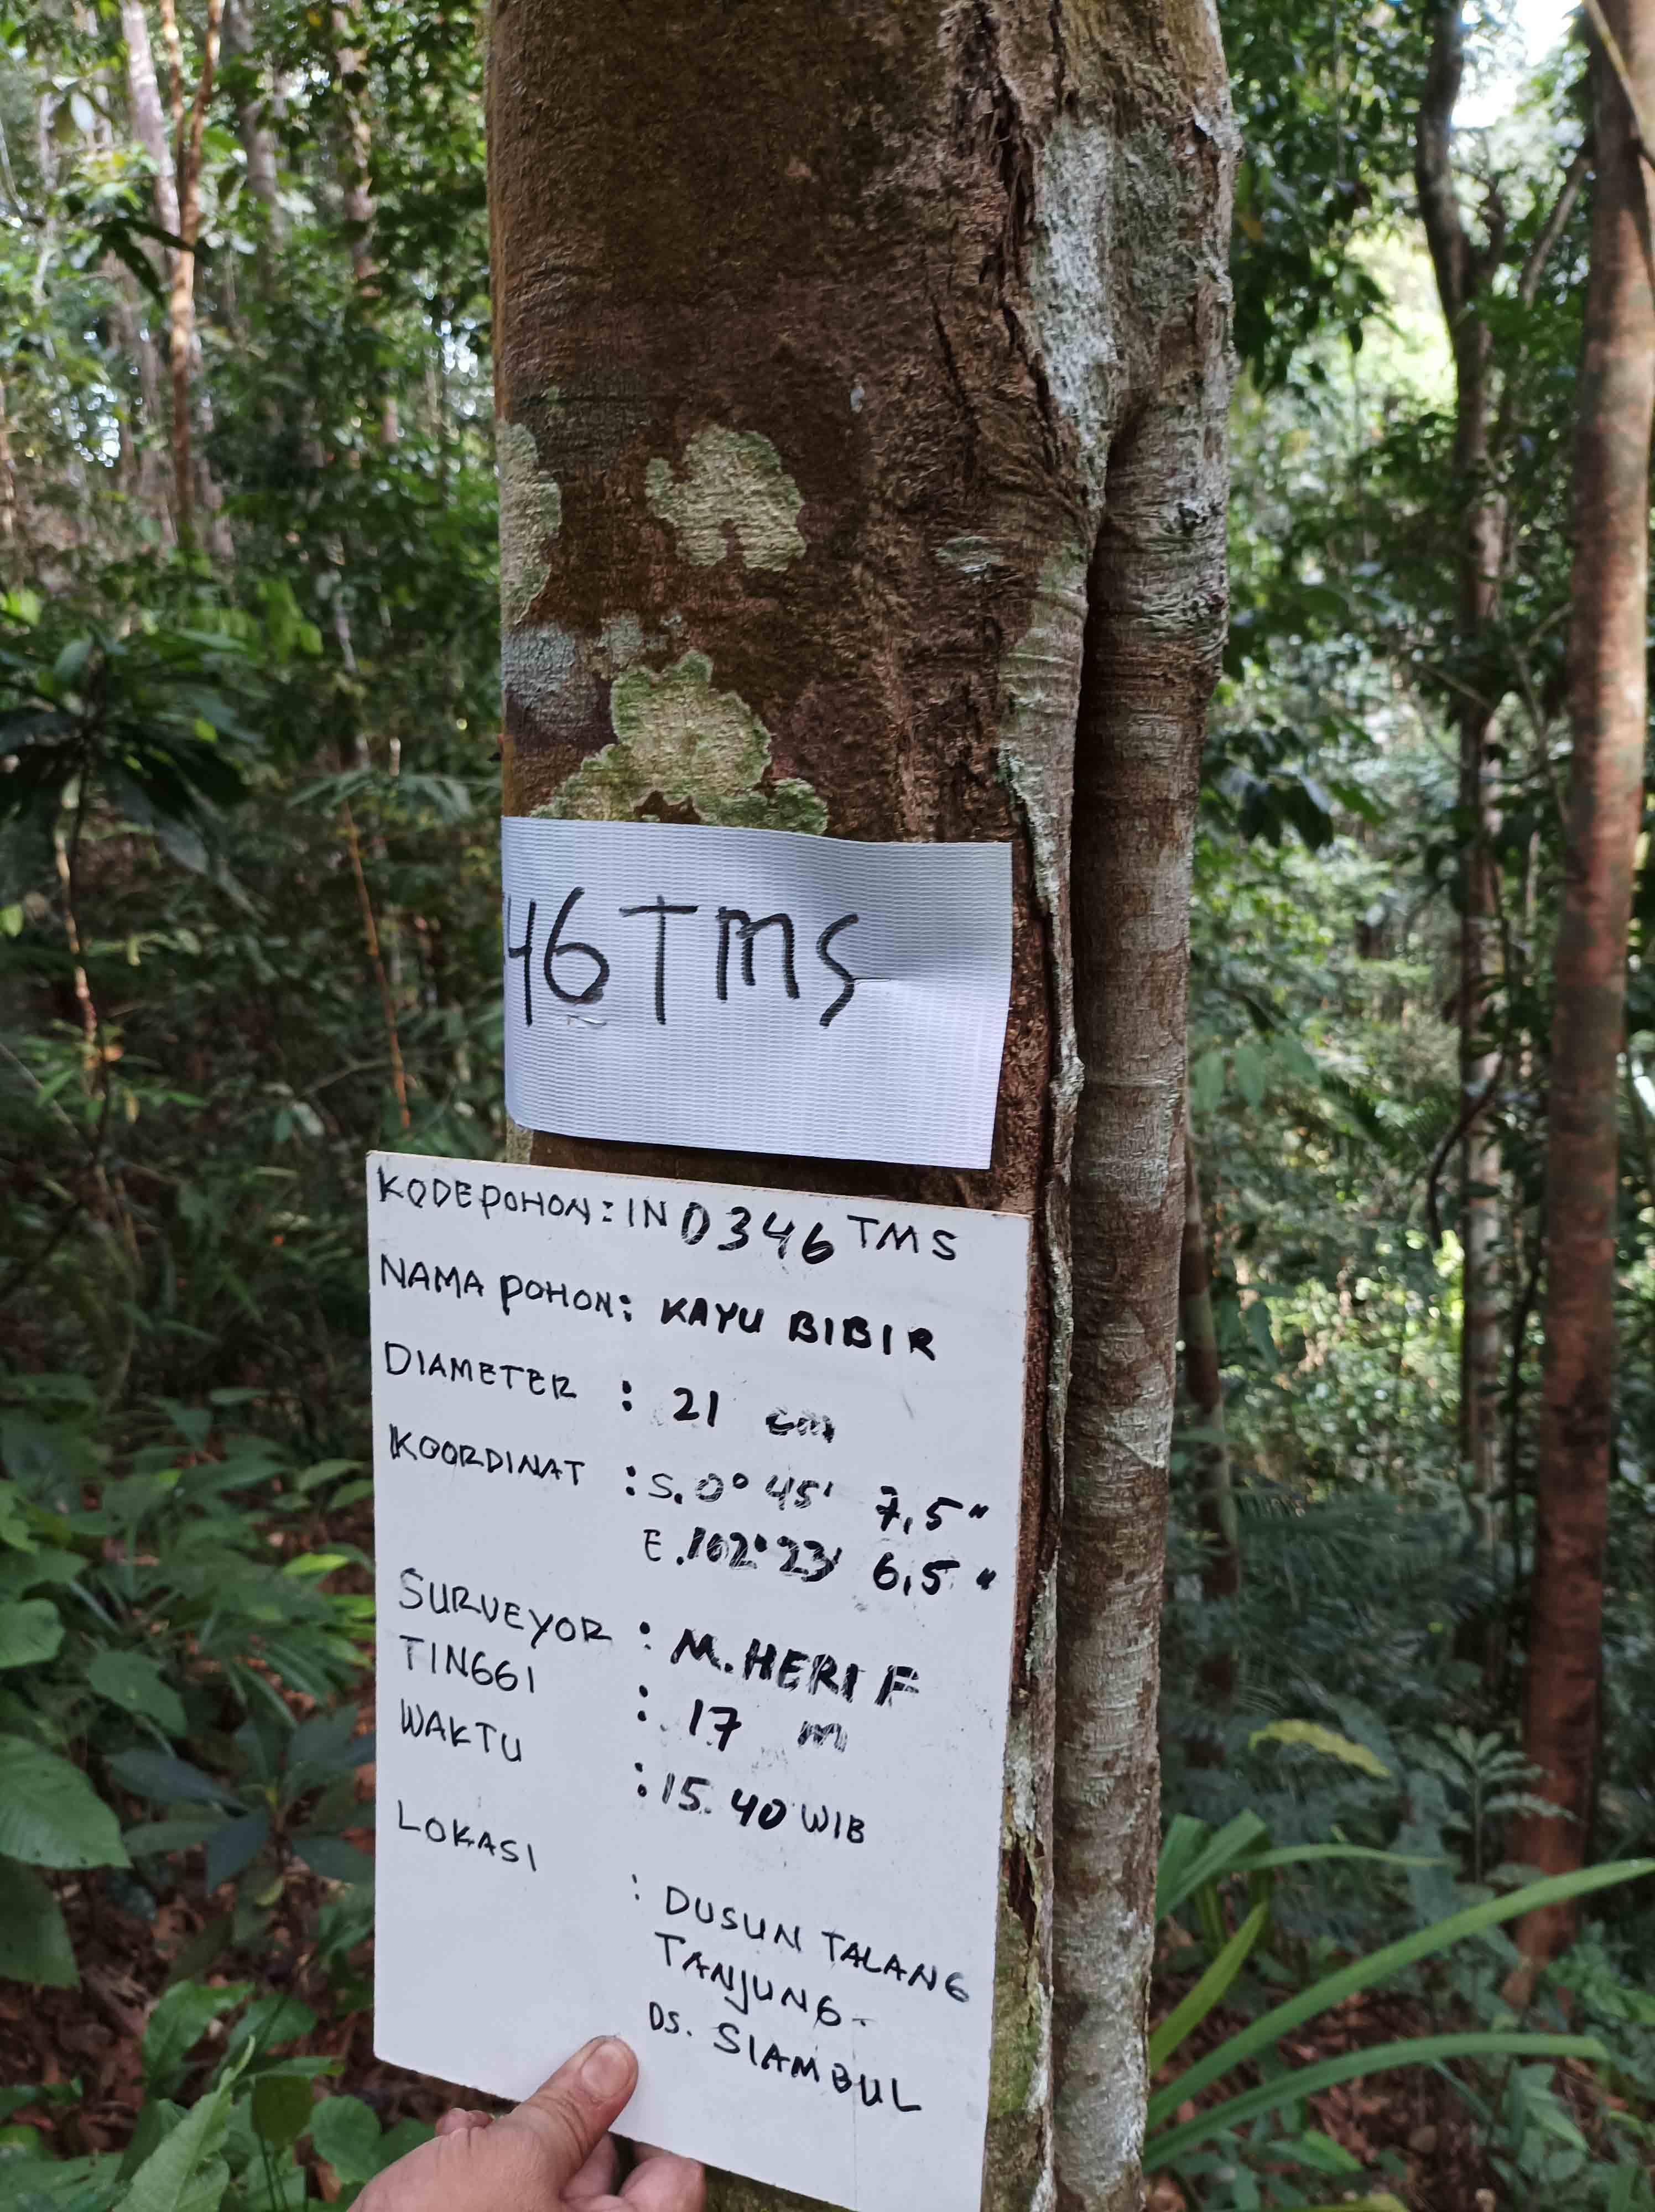 46 TMS
KODE POHON : IND346 TMS
NAMA POHON : KAYU BIBIR
DIAMETER : 21 cm
KOORDINAT : S. 0° 45' 7,5"
E. 102° 23' 6,5"
SURVEYOR : M. HERI F
TINGGI : 17 m
WAKTU : 15.40 WIB
LOKASI : DUSUN TALANG
TANJUNG -
DS. SIAMBUL